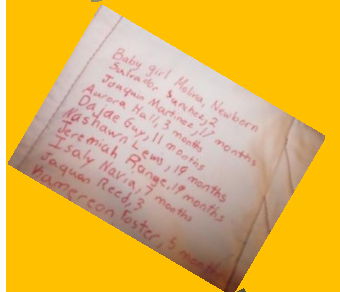 Baby girl Molina, Newborn
Salvador Sanchez, 2
Joaquin Martinez, 17 months
Aurora Hall, 3 months
Dajde Guy, 11 months
Nashawn Lewis, 19 months
Jeremiah Range, 19 months
Isaly Navia, 7 months
Jaquan Reed, 3
Kamereon Foster, 5 months